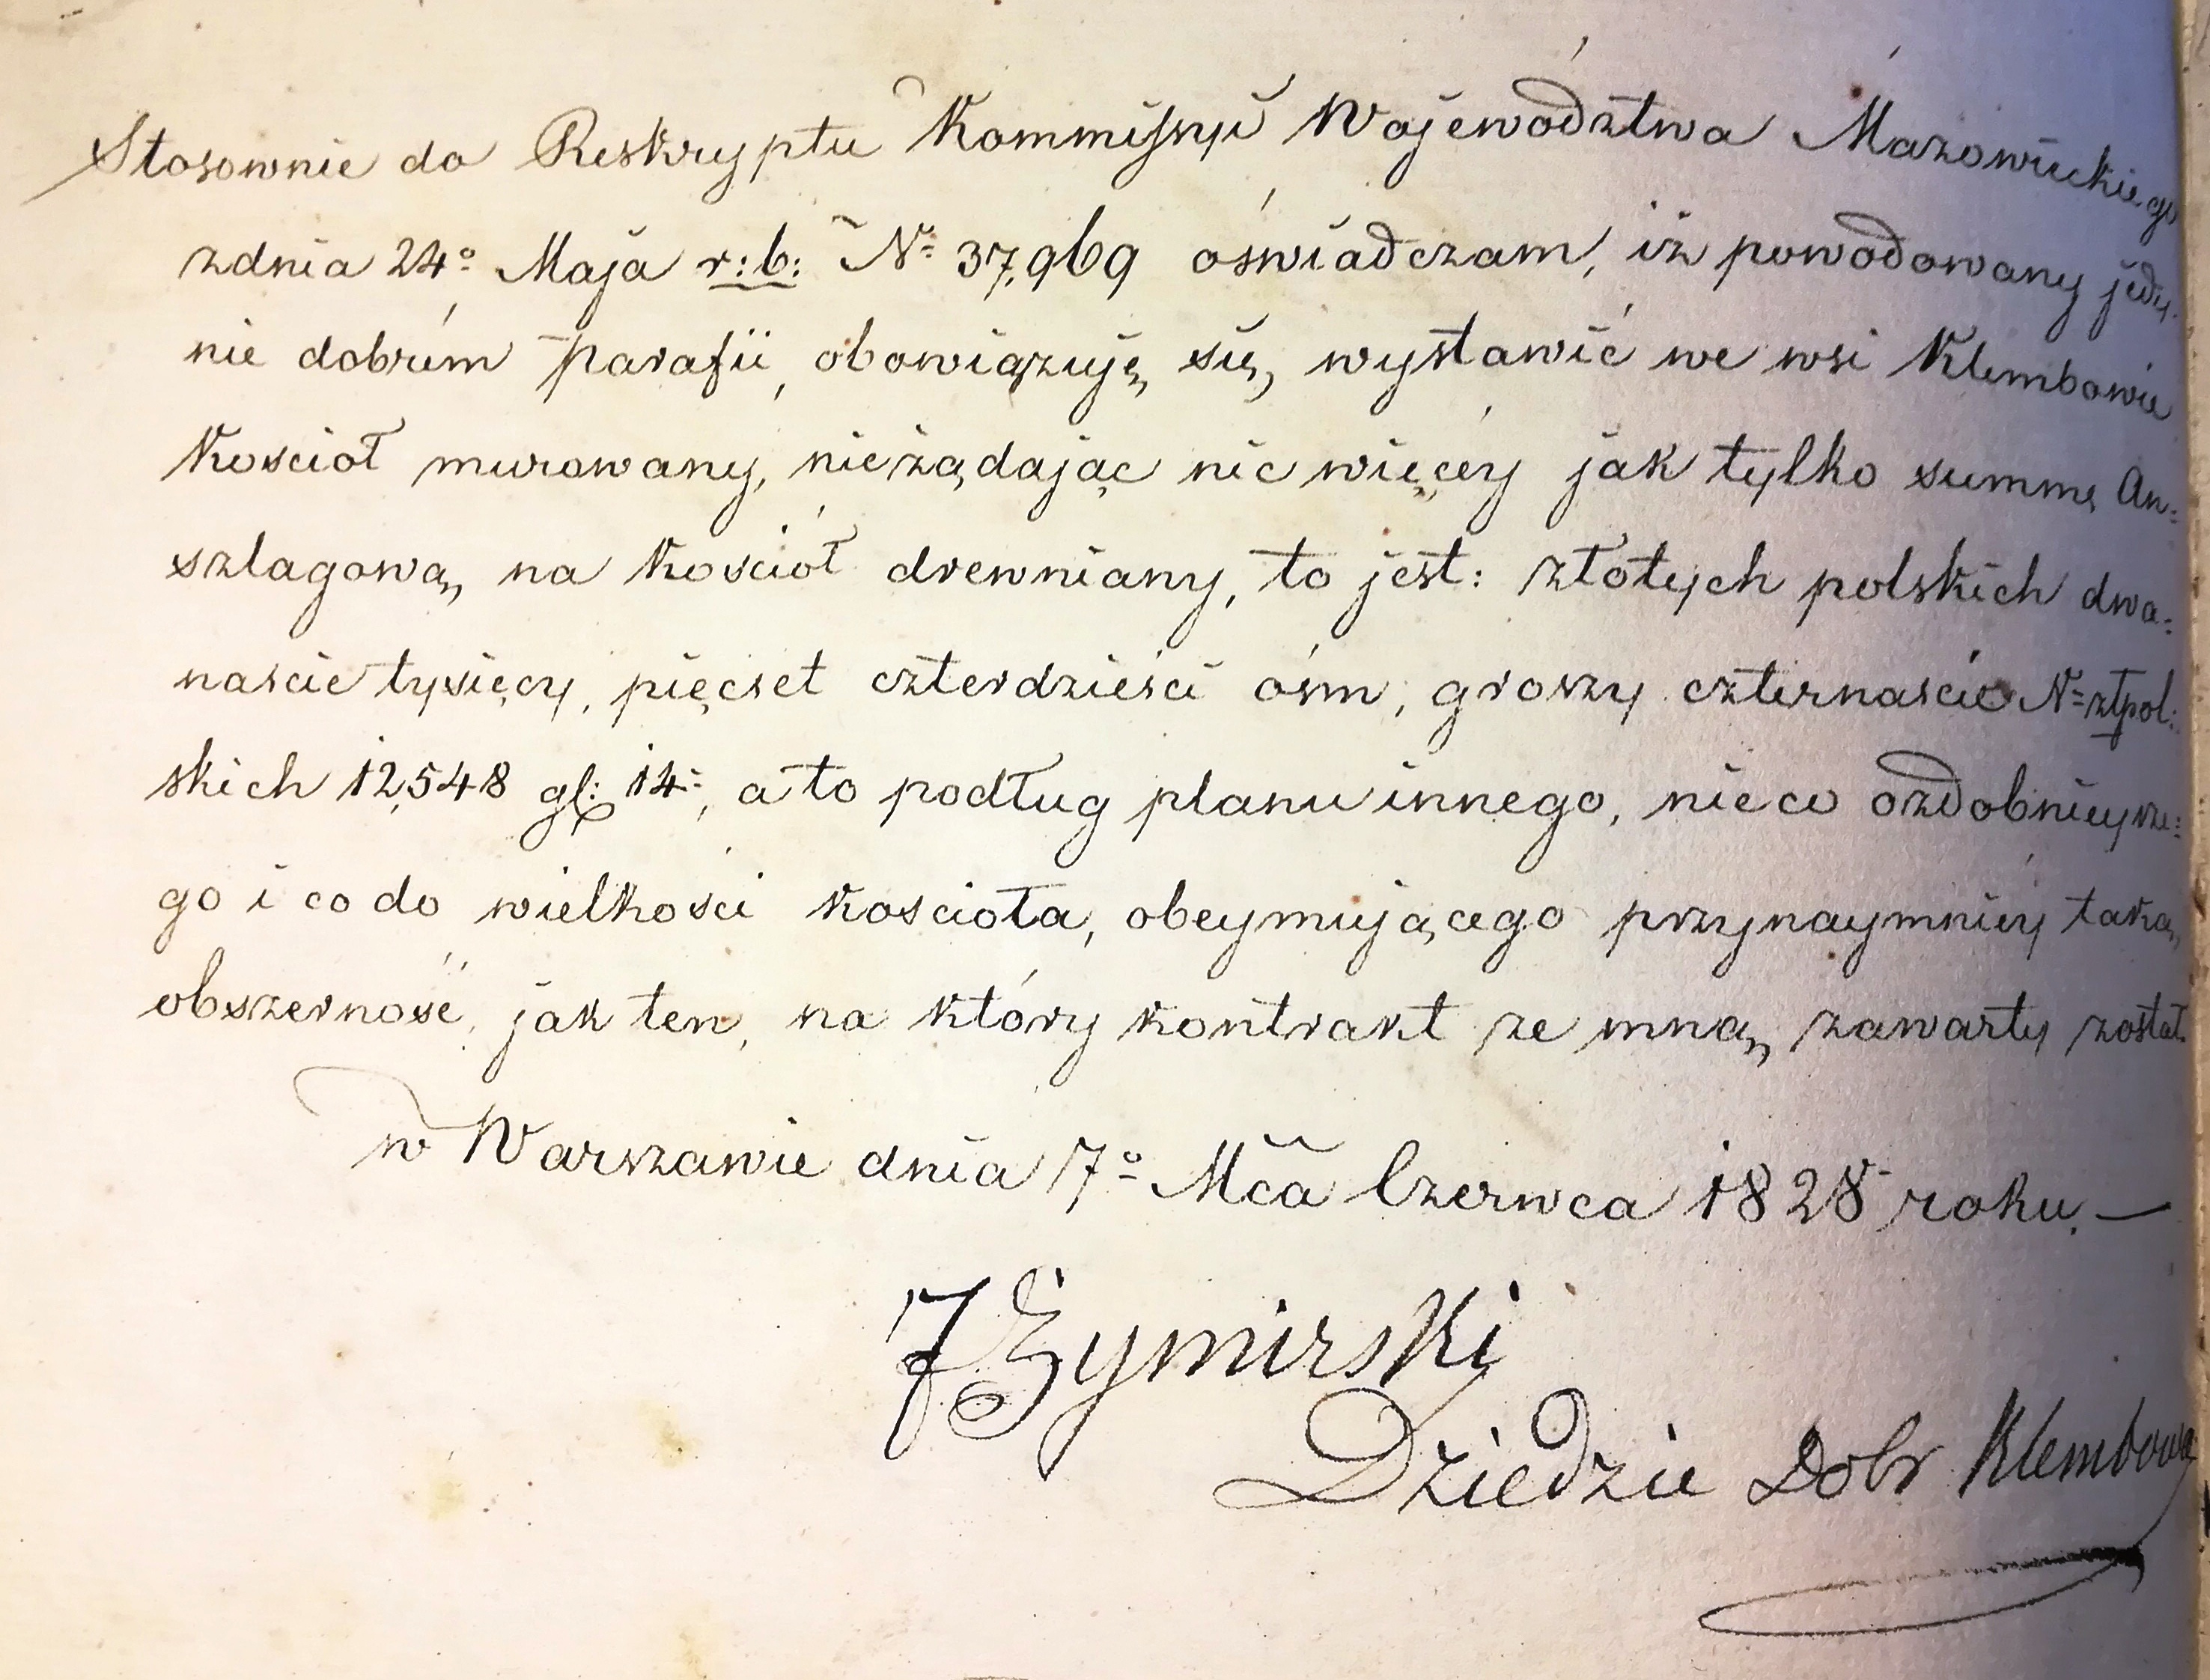 Stosownie do Reskryptu Kommissyi Województwa Mazowieckiego
z dnia 24º Maja r: b: Nº 37,969 oświadczam, iż powodowany jedy-
nie dobrém parafii, obowiązuję się, wystawić we wsi Klembowie
Kościoł murowany, nieżądając nic więcéy jak tylko summę An=
szlagową, na Kościół drewniany, to jest: złotych polskich dwa=
nascie tysięcy, pięcset czterdzieści ósm, groszy czternaście Nº złpol:
skich 12,548 gl: 14, a to podług planu innego, nieco ozdobnieysze=
go i co do wielkości Kościoła, obeymującego przynaymniéy taką,
obszerność, jak ten, na który kontrakt ze mną, zawarty został.
w Warszawie dnia 7º Mca Czerwca 1828 roku. —
J Szymirski
Dziedzic Dobr Klembowa